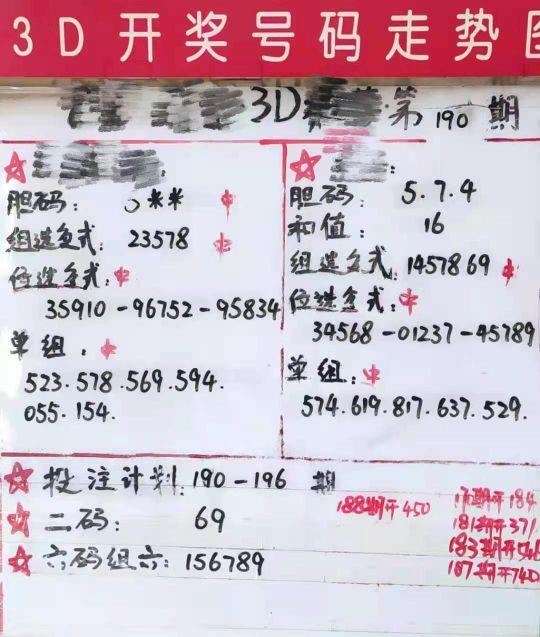 3D开奖号码走势图
3D 第190期
胆码: 中
组选复式: 23578 中
位选复式: 中
35910-96752-95834
单组: 中
523.578.569.594.
055.154.
胆码: 5.7.4
和值: 16
组选复式: 1457869 中
位选复式: 中
34568-01237-45789
单组: 中
574.619.817.637.529.
投注计划: 190-196 期
二码: 69
六码组六: 156789
188期开450
期开184
181期开371
183期开546
187期开740